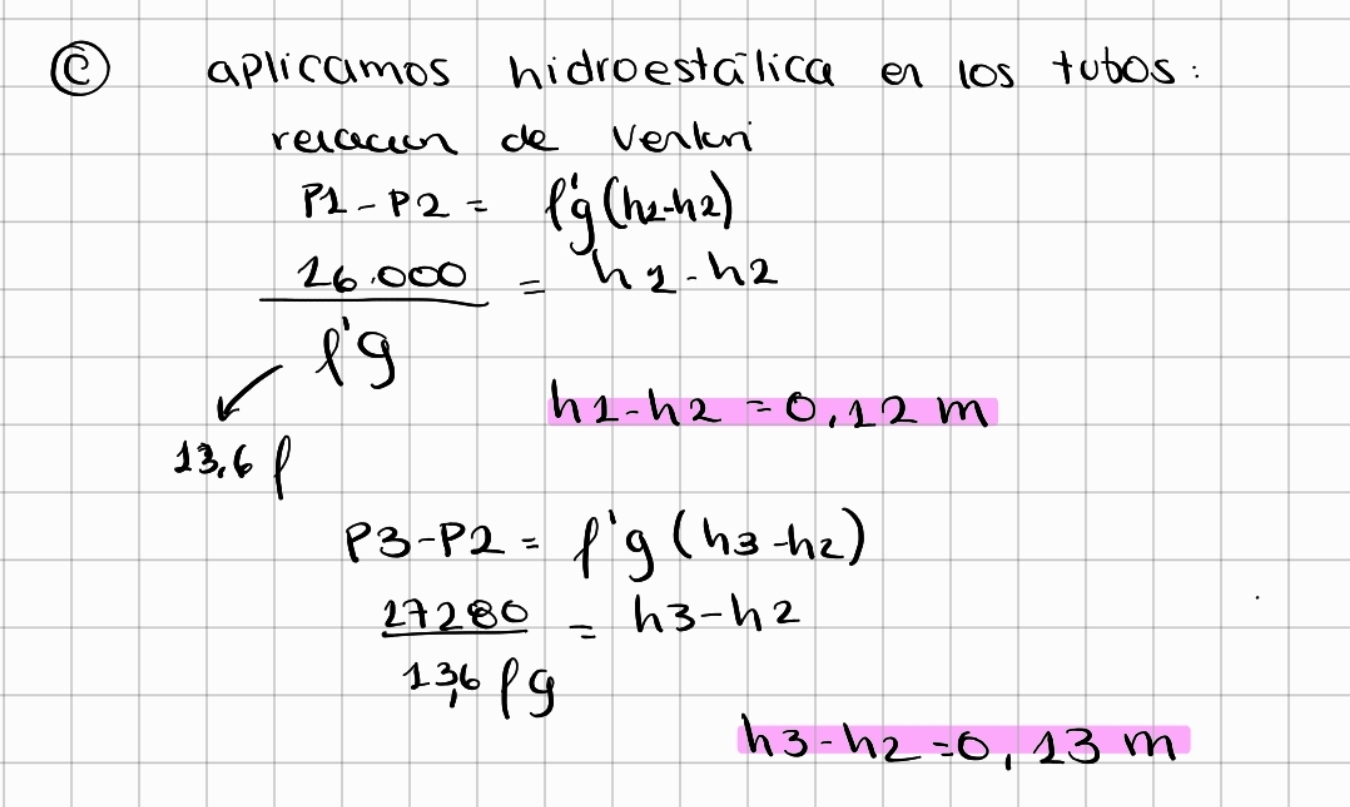 Ⓒ aplicamos hidroestálica en los tubos:
relacion de Venturi
P1-P2 = ρ'g(h1-h2)
16.000 / ρ'g = h1-h2
13,6 ρ
h1-h2 = 0,12 m
P3-P2 = ρ'g (h3-h2)
17280 / 13,6 ρg = h3-h2
h3-h2 = 0,13 m